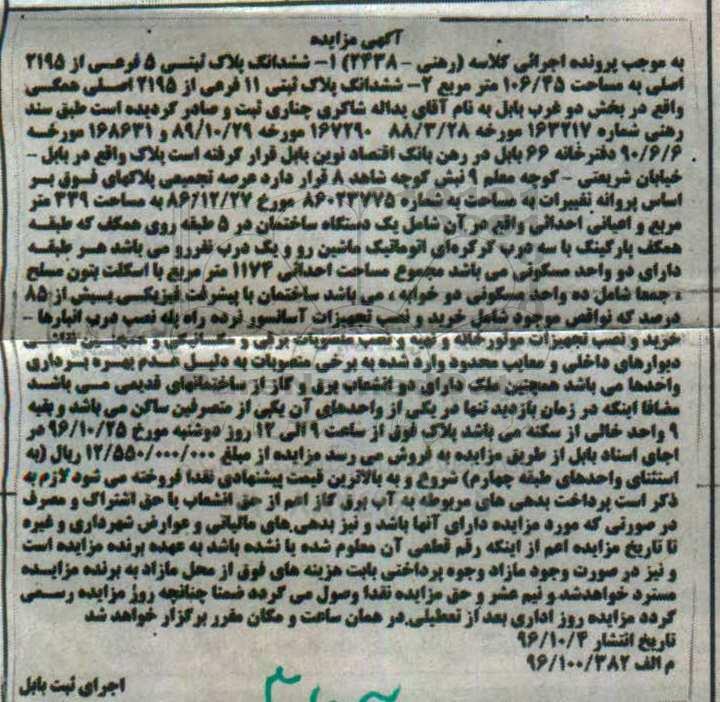 آگهی مزایده
به موجب پرونده اجرائی کلاسه (رهنی - ۲۴۳۸) ۱- ششدانگ پلاک ثبتی ۵ فرعی از ۲۱۹۵
اصلی به مساحت ۱۰۶/۴۵ متر مربع ۲- ششدانگ پلاک ثبتی ۱۱ فرعی از ۲۱۹۵ اصلی همگی
واقع در بخش دو غرب بابل به نام آقای یداله شاکری چناری ثبت و صادر گردیده است طبق سند
رهنی شماره ۱۶۳۲۱۷ مورخه ۸۸/۳/۲۸ ۱۶۷۲۹۰ مورخه ۸۹/۱۰/۲۹ و ۱۶۸۶۳۱ مورخه
۹۰/۶/۶ دفترخانه ۶۶ بابل در رهن بانک اقتصاد نوین بابل قرار گرفته است پلاک واقع در بابل -
خیابان شریعتی - کوچه معلم ۹ نبش کوچه شاهد ۸ قرار دارد عرصه تجمیعی پلاکهای فوق بر
اساس پروانه تغییرات به مساحت به شماره ۸۶۰۲۳۷۷۵ مورخ ۸۶/۱۲/۲۷ به مساحت ۳۳۹ متر
مربع و اعیانی احداثی واقع در آن شامل یک دستگاه ساختمان در ۵ طبقه روی همکف که طبقه
همکف پارکینگ با سه درب کرکره‌ای اتوماتیک ماشین رو و یک درب نفررو می باشد هر طبقه
دارای دو واحد مسکونی می باشد مجموع مساحت احداثی ۱۱۷۴ متر مربع با اسکلت بتون مسلح
، جمعا شامل ده واحد مسکونی دو خوابه ، می باشد ساختمان با پیشرفت فیزیکی بیش از ۸۵
درصد که نواقص موجود شامل خرید و نصب تجهیزات آسانسور نرده راه پله نصب درب انبارها -
خرید و نصب تجهیزات موتورخانه و تهیه و نصب منصوبات برقی و مکانیکی و همچنین
دیوارهای داخلی و معایب محدود وارد شده به برخی منصوبات به دلیل عدم بهره برداری
واحدها می باشد همچنین ملک دارای دو انشعاب برق و گاز از ساختمانهای قدیمی می باشد
مضافا اینکه در زمان بازدید تنها در یکی از واحدهای آن یکی از متصرفین ساکن می باشد و بقیه
۹ واحد خالی از سکنه می باشد پلاک فوق از ساعت ۹ الی ۱۲ روز دوشنبه مورخ ۹۶/۱۰/۲۵ در
اجای اسناد بابل از طریق مزایده به فروش می رسد مزایده از مبلغ ۱۲/۵۵۰/۰۰۰/۰۰۰ ریال (به
استثنای واحدهای طبقه چهارم) شروع و به بالاترین قیمت پیشنهادی نقدا فروخته می شود لازم به
ذکر است پرداخت بدهی های مربوطه به آب برق گاز اعم از حق انشعاب یا حق اشتراک و مصرف
در صورتی که مورد مزایده دارای آنها باشد و نیز بدهی های مالیاتی و عوارض شهرداری و غیره
تا تاریخ مزایده اعم از اینکه رقم قطعی آن معلوم شده یا نشده باشد به عهده برنده مزایده است
و نیز در صورت وجود مازاد وجوه پرداختی بابت هزینه های فوق از محل مازاد به برنده مزایده
مسترد خواهدشد و نیم عشر و حق مزایده نقدا وصول می گردد ضمنا چنانچه روز مزایده رسمی
گردد مزایده روز اداری بعد از تعطیلی در همان ساعت و مکان مقرر برگزار خواهد شد
تاریخ انتشار ۹۶/۱۰/۴
م الف ۹۶/۱۰۰/۳۸۲
اجرای ثبت بابل